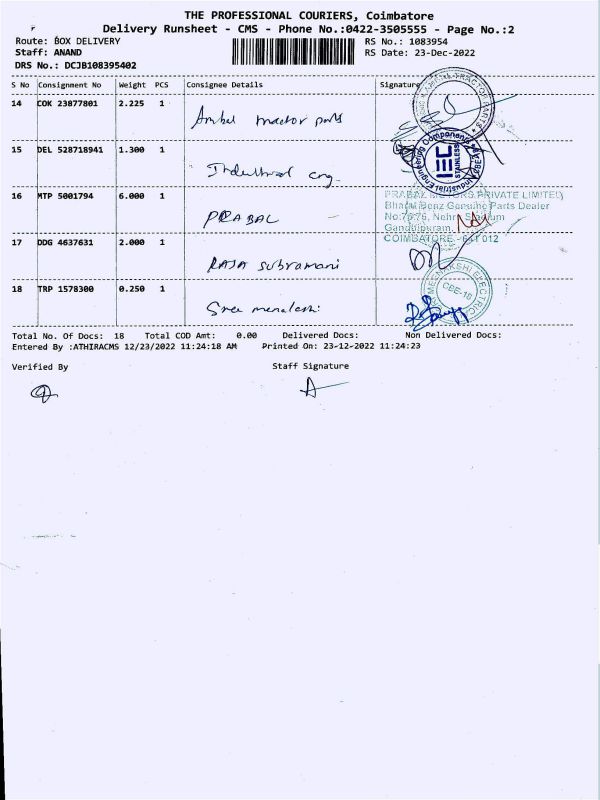 THE PROFESSIONAL COURIERS, Coimbatore
Delivery Runsheet - CMS - Phone No.:0422-3505555 - Page No.:2
Route: BOX DELIVERY
RS No.: 1083954
Staff: ANAND
RS Date: 23-Dec-2022
DRS No.: DCJB108395402
S No Consignment No Weight PCS Consignee Details Signature
14 COK 23877801 2.225 1 Ambal tractor parts
15 DEL 528718941 1.300 1 Industrial eng.
16 MTP 5001794 6.000 1 PRABAL
PRABAL MOTORS PRIVATE LIMITED
Bharat Benz Genuine Parts Dealer
No:75,76, Nehru Stadium
Gandhipuram,
COIMBATORE - 641 012
17 DDG 4637631 2.000 1 RAJA Subramani
18 TRP 1578300 0.250 1 Sree
CBE-18
Total No. Of Docs: 18 Total COD Amt: 0.00 Delivered Docs: Non Delivered Docs:
Entered By :ATHIRACMS 12/23/2022 11:24:18 AM Printed On: 23-12-2022 11:24:23
Verified By Staff Signature